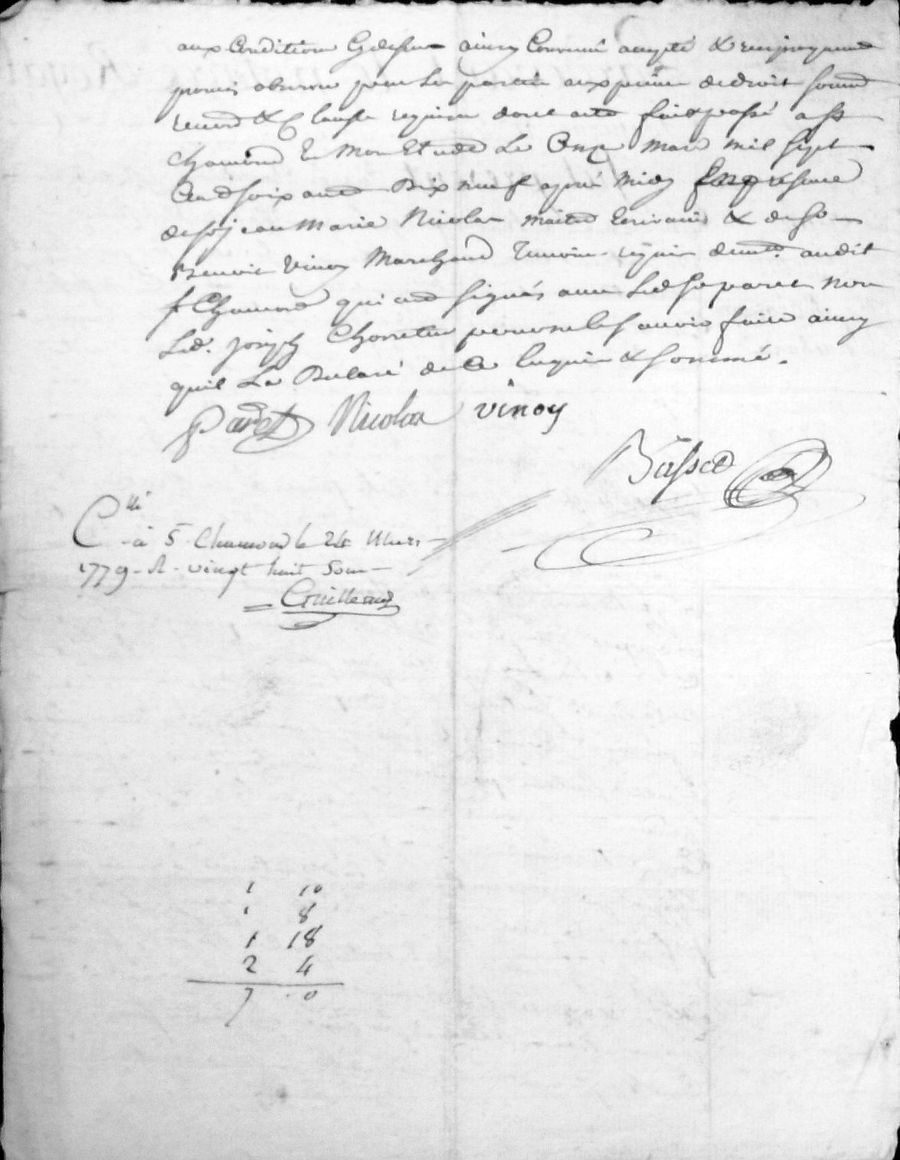 aux Conditions Cydessus ainsy Convenu accepté & réciproquement
promis observer par les parties aux peines de droit soumis
renon & Clause requise dont acte fait & passé a St
Chamond En Mon Etude Le Onze Mars mil sept
Cent soixante Dix neuf apres midy En presence
de Sr jean Marie Nicolas maitre Ecrivain & de Sr
Benoit Vinoy Marchand temoins requis demts. audit
St Chamond qui ont signés avec Led Sr paret non
Led. joseph Chorretier pour ne le savoir faire ainsy
quil La Declaré de Ce Enquis & sommé.
Paret Nicolas vinoy
Basset
Cllé
à St Chamond le 24 Mars
1779 - R - vingt huit Sous
Guilleaud
1 10
1 8
1 18
2 4
7 . 0